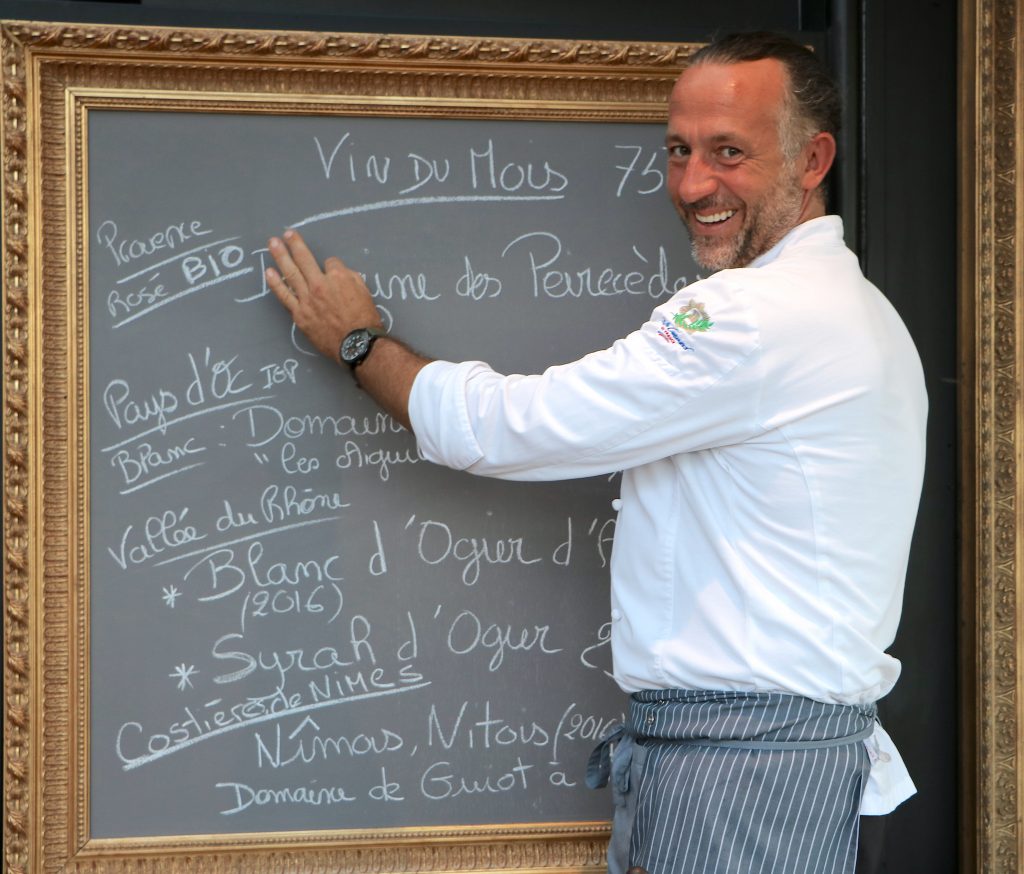 Vin Du Mois 75
Provence
Rosé BIO
des Peirecède
Pays d'Oc IGP
Blanc : Domain
"les Aigui
Vallée du Rhône
* Blanc d'Ogier d'A
(2016)
* Syrah d'Ogier 2
Costières de NIMES
Nîmois, Nitois (2016
Domaine de Guiot à